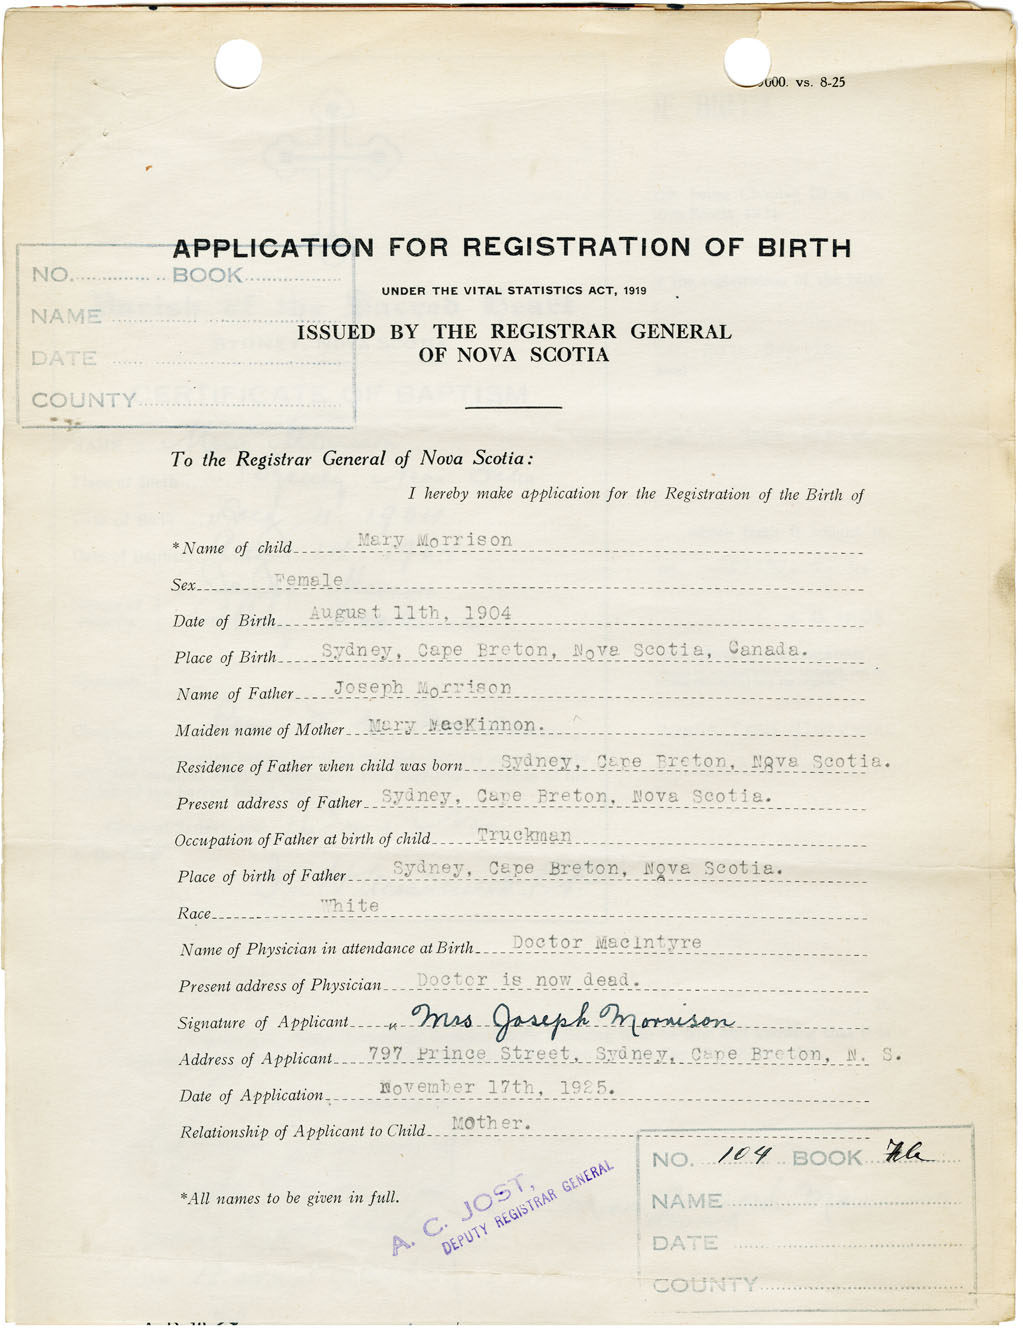 000. vs. 8-25
APPLICATION FOR REGISTRATION OF BIRTH
NO. BOOK
UNDER THE VITAL STATISTICS ACT, 1919
NAME
ISSUED BY THE REGISTRAR GENERAL
OF NOVA SCOTIA
DATE
COUNTY
CERTIFICATE OF BAPTISM
To the Registrar General of Nova Scotia:
I hereby make application for the Registration of the Birth of
*Name of child Mary Morrison
Sex Female
Date of Birth August 11th, 1904
Place of Birth Sydney, Cape Breton, Nova Scotia, Canada.
Name of Father Joseph Morrison
Maiden name of Mother Mary MacKinnon.
Residence of Father when child was born Sydney, Cape Breton, Nova Scotia.
Present address of Father Sydney, Cape Breton, Nova Scotia.
Occupation of Father at birth of child Truckman
Place of birth of Father Sydney, Cape Breton, Nova Scotia.
Race White
Name of Physician in attendance at Birth Doctor MacIntyre
Present address of Physician Doctor is now dead.
Signature of Applicant " Mrs Joseph Morrison
Address of Applicant 797 Prince Street, Sydney, Cape Breton, N. S.
Date of Application November 17th, 1925.
Relationship of Applicant to Child Mother.
NO. 104 BOOK
*All names to be given in full.
A. C. JOST,
DEPUTY REGISTRAR GENERAL
NAME
DATE
COUNTY